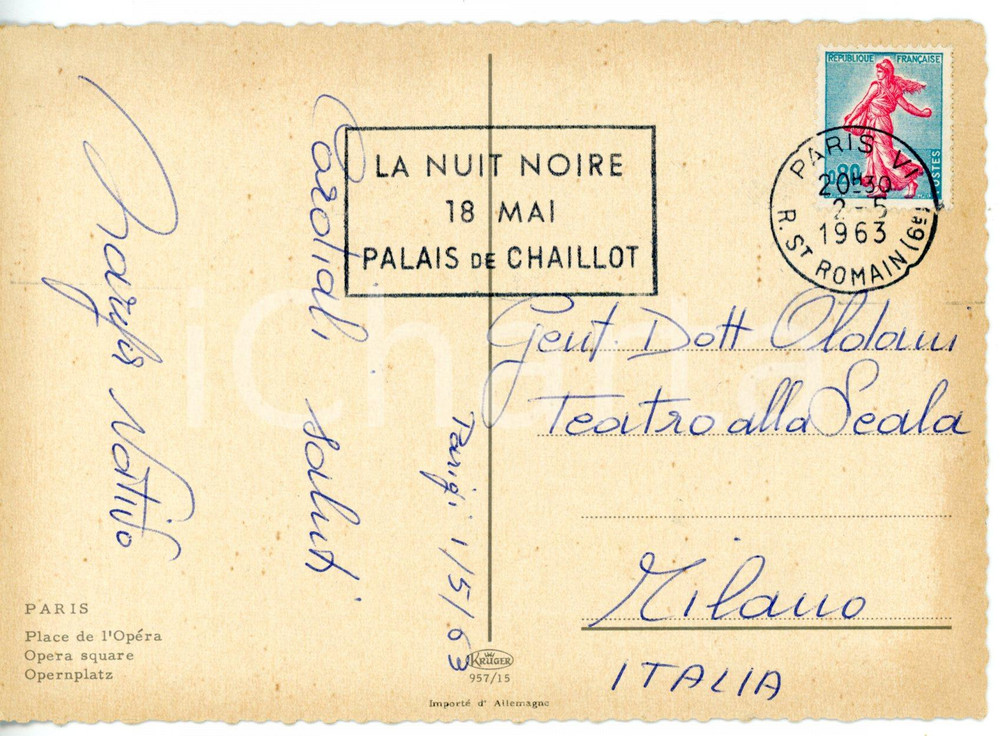 REPUBLIQUE FRANÇAISE
0,20
POSTES
PARIS VI
20H30
2-5
1963
R. ST ROMAIN (6È)
LA NUIT NOIRE
18 MAI
PALAIS DE CHAILLOT
Cordiali saluti
Parigi 1/5/63
Gent. Dott Oldani
Teatro alla Scala
Milano
ITALIA
PARIS
Place de l'Opéra
Opera square
Opernplatz
KRÜGER
957/15
Importé d'Allemagne
iCharta